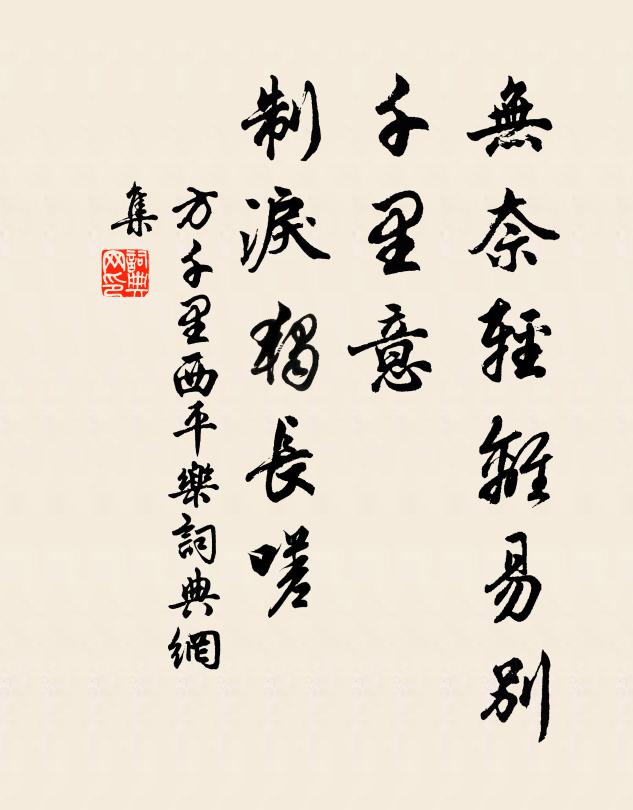 無奈輕離易別
千里意
制淚獨長嗟
方千里西平樂詞典網
集
詞典
网印